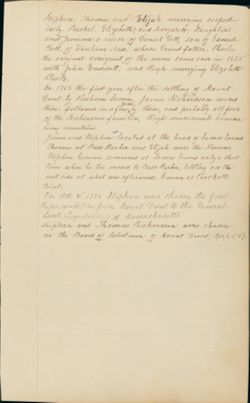 Stephen, Thomas and Elijah marrying respect-
ively, Rachel, Elizabeth and Margaret, daughters
and Jemima a niece of Daniel Gott, son of Samuel
Gott, of Wenham Mass, whose Grandfather, Charles
the original emigrant of the name came over in 1628
with John Endicott, and Hugh marrying Elizabeth
In 1762 the first year after the settling of Mount
Desert by Abraham Somes, James Richardson moved
there, followed in a few years, and partially all four
of the Richardson families, Hugh
James and Stephen located at the head of Somes Sound
Thomas at Bass Harbor and Elijah near the Narrows
Stephen however remained at Somes Sound only a short
time when he too moved to Bass Harbor, settling on the
west side at what was afterwards known as Crocketts
Point,
On Oct. 8" 1776 Stephen was chosen the first
Representative from Mount Desert to the General
Court (Legislature) of Massachusetts.
Stephen and Thomas Richardson were chosen
on the Board of Selectmen of Mount Desert, April